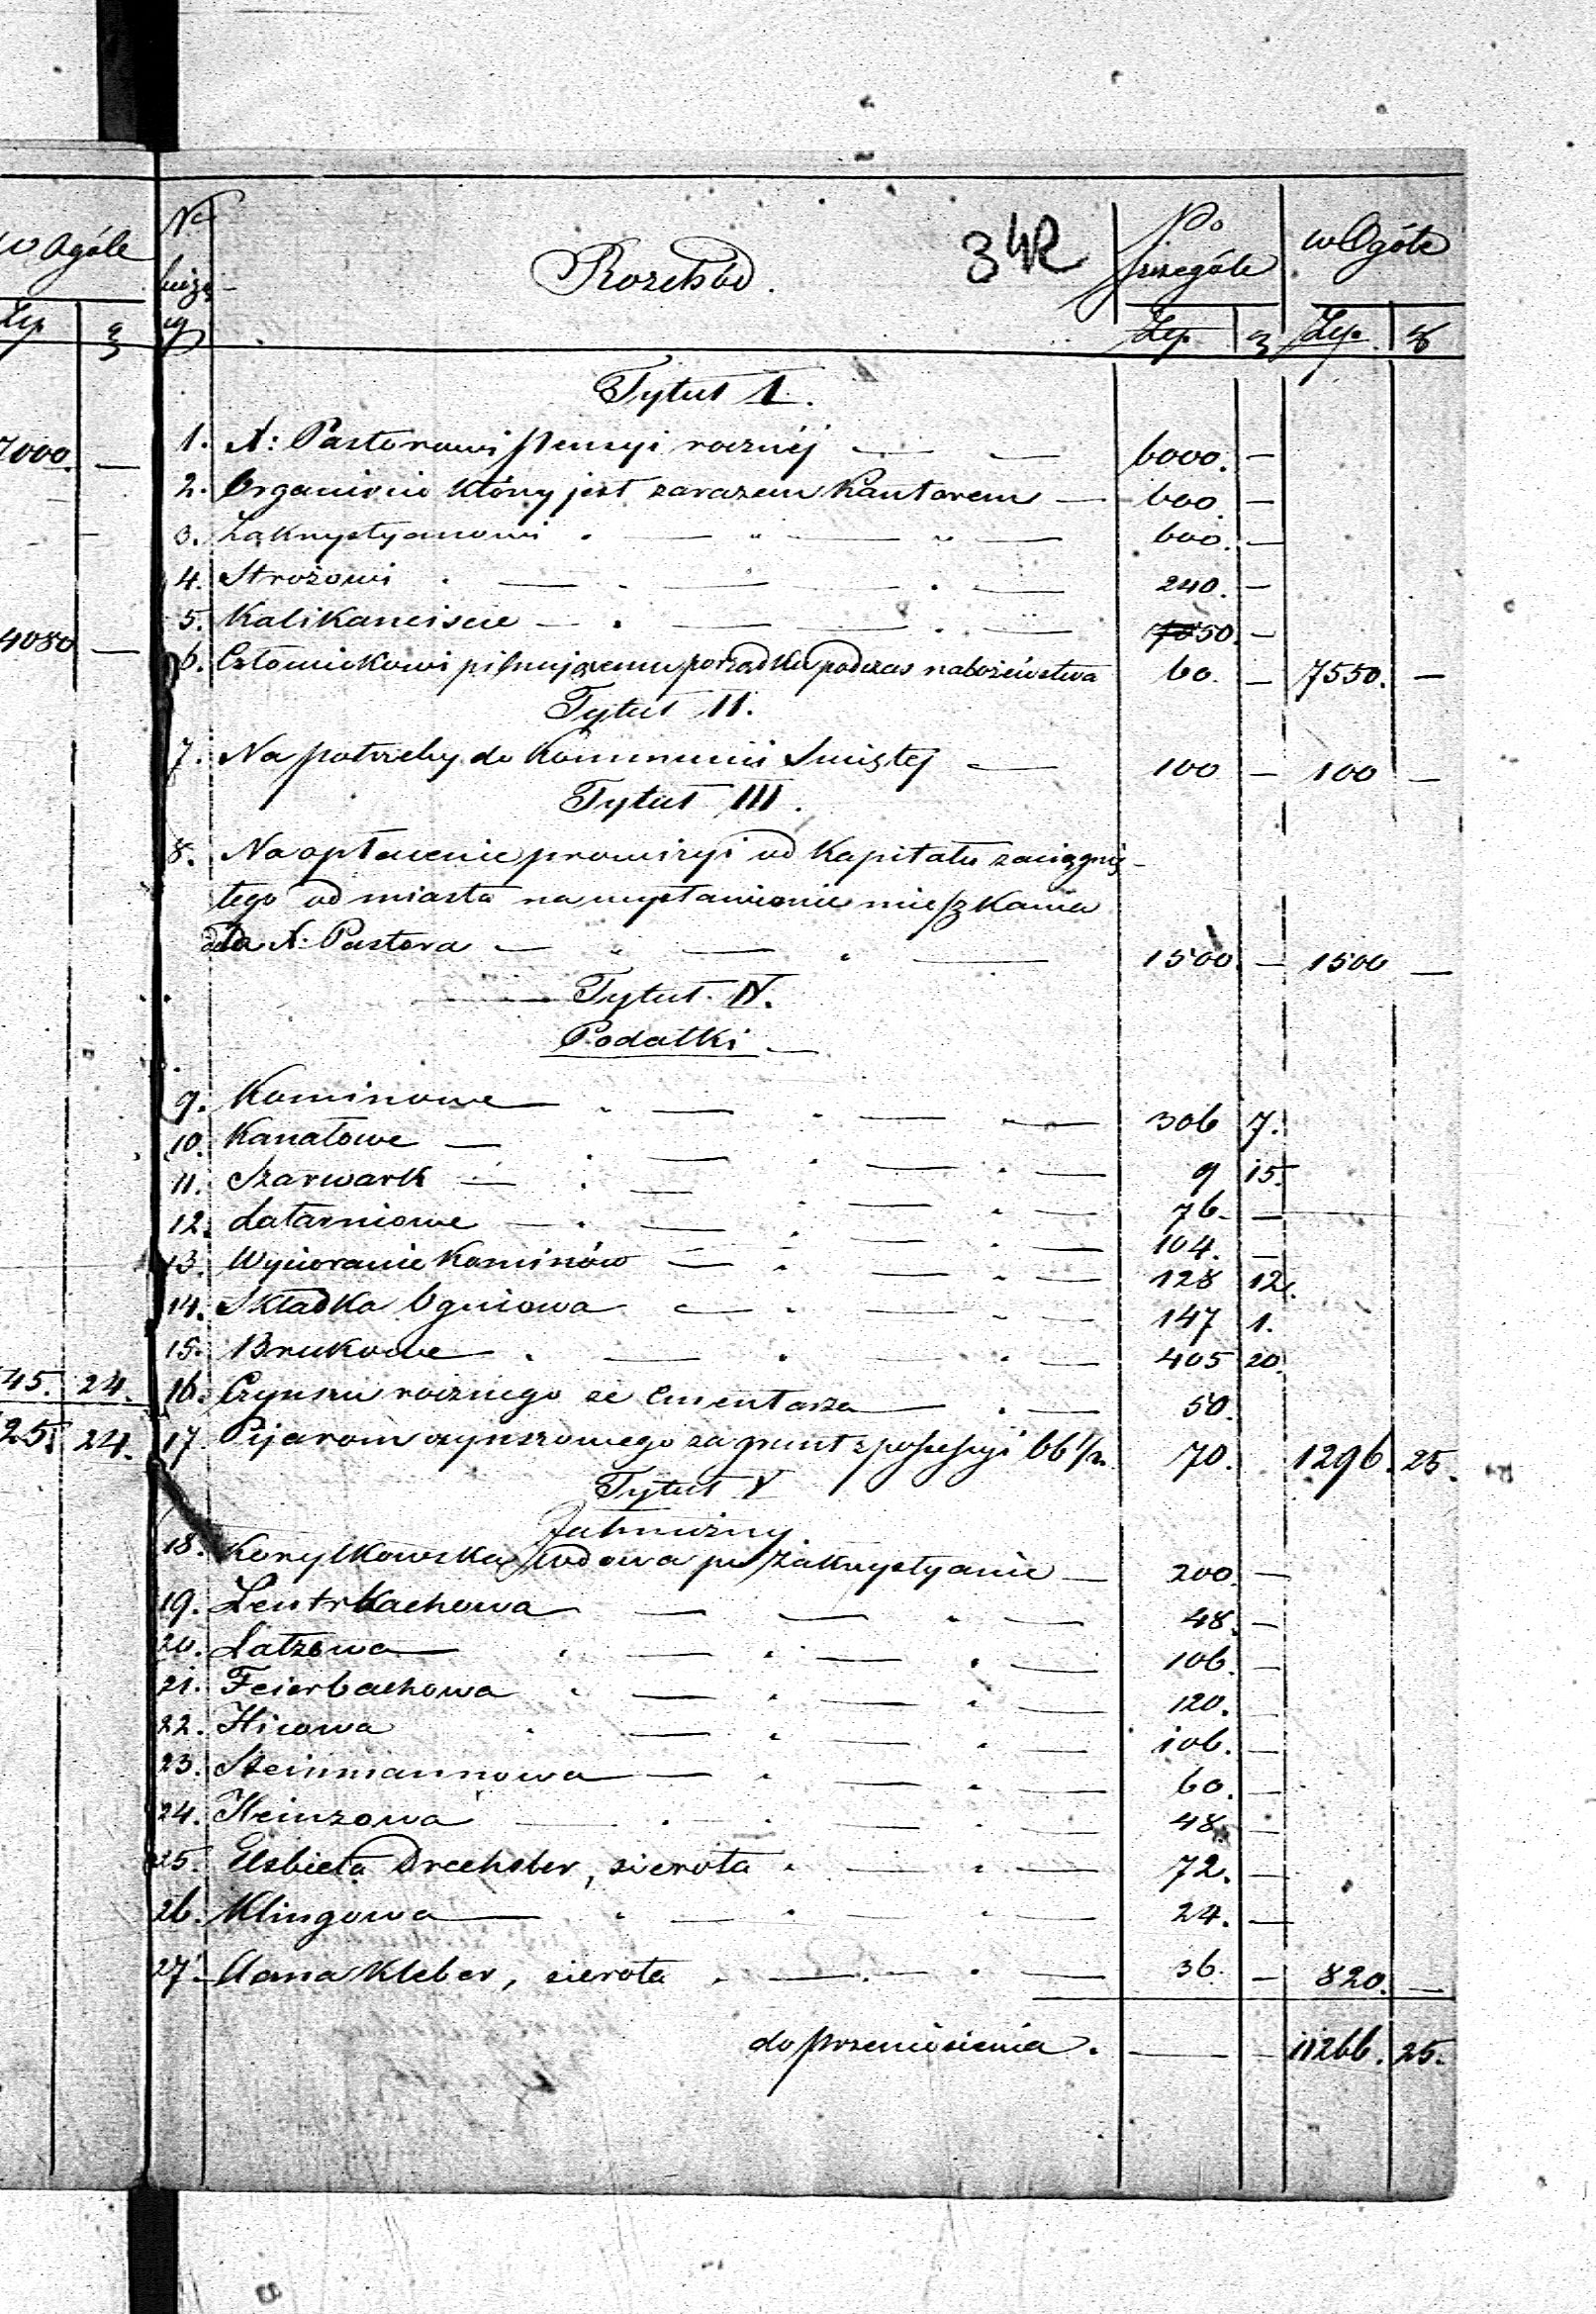 w Ogóle
Złp. g
7000. —
4080 —
45. 24.
25. 24.
No bieżą-cy
Rozchód.
342
Po szczególe
w Ogóle
Złp. g Złp. g
Tytuł I.
1. X: Pastorowi pensyi rocznéj — — 6000. —
2. Organiście który jest zarazem Kantorem — 600. —
3. Zakrystyanowi — — — 600. —
4. Strożowi — — — 240. —
5. Kalikanciście — — — 50. —
6. Człowiekowi pilnującemu porządku podczas nabożeństwa 60. — 7550. —
Tytuł II.
7. Na potrzeby do Kommunii Swiętej — 100 — 100 —
Tytuł III.
8. Na opłacenie prowizyi od Kapitału zaciągnię-
tego od miasta na wystawienie mieszkania
dla X: Pastora — — — 1500. — 1500 —
Tytuł IV.
Podatki —
9. Kominowe — — — 306 7.
10. Kanałowe — — — 9 15.
11. Szarwark — — — 76. —
12. Latarniowe — — — 104. —
13. Wycieranie Kominów — — — 128 12.
14. Składka Ogniowa — — — 147 1.
15. Brukowe — — — 405 20.
16. Czynszu rocznego ze Cmentarza — — 50.
17. Pijarom czynszowego za grunt z possessyi 66 1/2. 70. 1296. 25.
Tytuł V
Jałmużny.
18. Korytkowska wdowa po Zakrystyanie — 200. —
19. Zentrbachowa — — — 48. —
20. Latzowa — — — 106. —
21. Feierbachowa — — — 120. —
22. Hicowa — — — 106. —
23. Steinmannowa — — — 60. —
24. Heinzowa — — — 48. —
25. Elzbieta Drechsler, sierota — — 72. —
26. Klingowa — — — 24. —
27. Anna Kleber, sierota — — 36. — 820. —
do przeniesienia. — — 11266. 25.